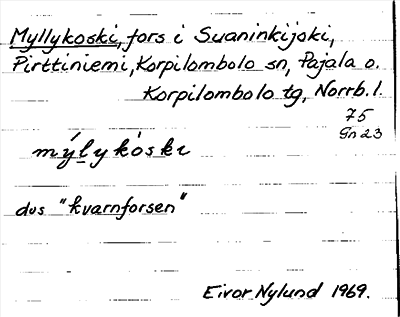 Myllykoski, fors i Suaninkijoki,
Pirttiniemi, Korpilombolo sn, Pajala o.
Korpilombolo tg, Norrb. l.
75
Gn 23
mýlykòski
dvs "kvarnforsen"
Eivor Nylund 1969.